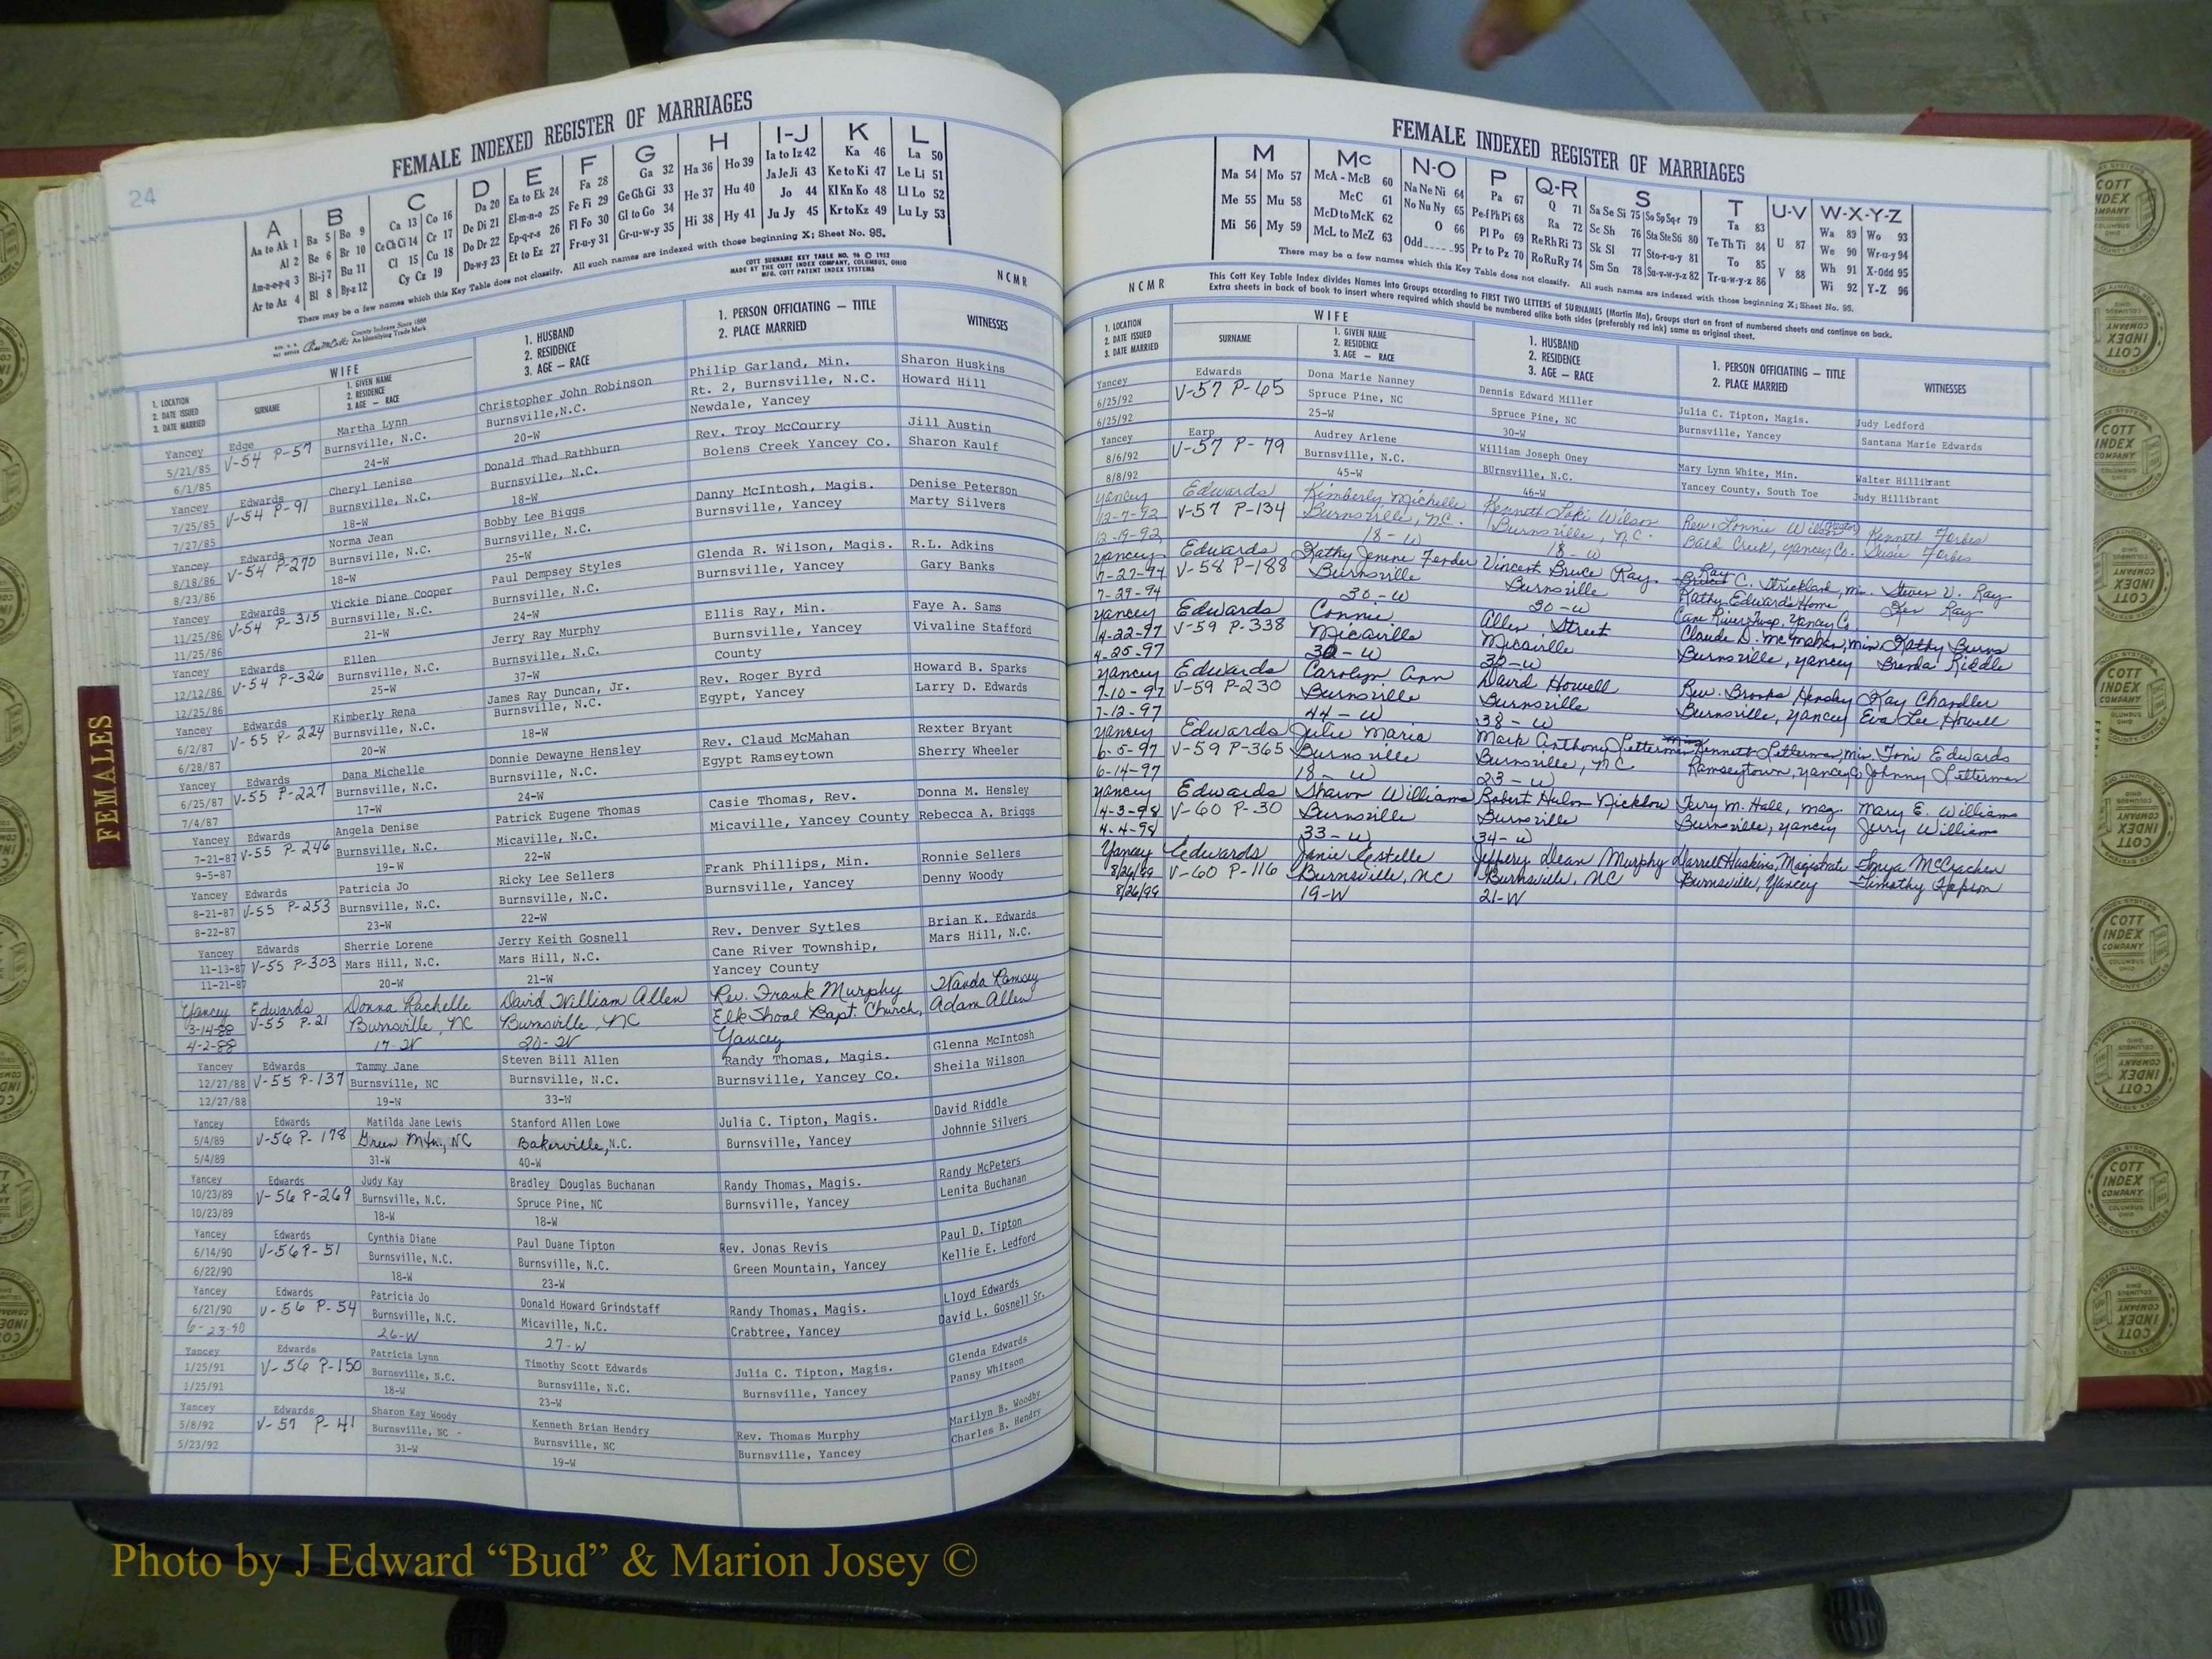 24
FEMALE INDEXED REGISTER OF MARRIAGES
A B C D E F G H I-J K L
Aa to Ak 1 Ba 5 Bo 9 Ca 13 Co 16 Da 20 Ea to Ek 24 Fa 28 Ga 32 Ha 36 Ho 39 Ia to Iz 42 Ka 46 La 50
Al 2 Be 6 Br 10 Ce Ch Ci 14 Cr 17 De Di 21 El-m-n-o 25 Fe Fi 29 Ge Gh Gi 33 He 37 Hu 40 Ja Je Ji 43 Ke to Ki 47 Le Li 51
Am-n-o-p-q 3 Bi-j 7 Bu 11 Cl 15 Cu 18 Do Dr 22 Ep-q-r-s 26 Fl Fo 30 Gl to Go 34 Hi 38 Hy 41 Jo 44 Kl Kn Ko 48 Ll Lo 52
Ar to Az 4 Bl 8 By-z 12 Cy Cz 19 Du-w-y 23 Et to Ez 27 Fr-u-y 31 Gr-u-w-y 35 Ju Jy 45 Kr to Kz 49 Lu Ly 53
There may be a few names which this Key Table does not classify. All such names are indexed with those beginning X; Sheet No. 95.
County Indexes Since 1888
An Identifying Trade Mark
COTT SURNAME KEY TABLE NO. 96 © 1952
MADE BY THE COTT INDEX COMPANY, COLUMBUS, OHIO
MFG. COTT PATENT INDEX SYSTEMS
NCMR
1. LOCATION
2. DATE ISSUED
3. DATE MARRIED
WIFE
SURNAME
1. GIVEN NAME
2. RESIDENCE
3. AGE — RACE
1. HUSBAND
2. RESIDENCE
3. AGE — RACE
1. PERSON OFFICIATING — TITLE
2. PLACE MARRIED
WITNESSES
Yancey Edge Martha Lynn Christopher John Robinson Philip Garland, Min. Sharon Huskins
5/21/85 V-54 P-57 Burnsville, N.C. Burnsville,N.C. Rt. 2, Burnsville, N.C. Howard Hill
6/1/85 24-W 20-W Newdale, Yancey
Yancey Edwards Cheryl Lenise Donald Thad Rathburn Rev. Troy McCourry Jill Austin
7/25/85 V-54 P-91 Burnsville, N.C. Burnsville, N.C. Bolens Creek Yancey Co. Sharon Kaulf
7/27/85 18-W 18-W
Edwards Norma Jean Bobby Lee Biggs Danny McIntosh, Magis. Denise Peterson
8/18/86 V-54 P-270 Burnsville, N.C. Burnsville, N.C. Burnsville, Yancey Marty Silvers
8/23/86 18-W 25-W
Edwards Vickie Diane Cooper Paul Dempsey Styles Glenda R. Wilson, Magis. R.L. Adkins
11/25/86 V-54 P-315 Burnsville, N.C. Burnsville, N.C. Burnsville, Yancey Gary Banks
11/25/86 21-W 24-W
Yancey Edwards Ellen Jerry Ray Murphy Ellis Ray, Min. Faye A. Sams
12/12/86 V-54 P-326 Burnsville, N.C. Burnsville, N.C. Burnsville, Yancey Vivaline Stafford
12/25/86 25-W 37-W County
Yancey Edwards Kimberly Rena James Ray Duncan, Jr. Rev. Roger Byrd Howard B. Sparks
6/2/87 V-55 P-224 Burnsville, N.C. Burnsville, N.C. Egypt, Yancey Larry D. Edwards
6/28/87 20-W 18-W
Yancey Edwards Dana Michelle Donnie Dewayne Hensley Rev. Claud McMahan Rexter Bryant
6/25/87 V-55 P-227 Burnsville, N.C. Burnsville, N.C. Egypt Ramseytown Sherry Wheeler
7/4/87 17-W 24-W
Yancey Edwards Angela Denise Patrick Eugene Thomas Casie Thomas, Rev. Donna M. Hensley
7-21-87 V-55 P-246 Burnsville, N.C. Micaville, N.C. Micaville, Yancey County Rebecca A. Briggs
9-5-87 19-W 22-W
Yancey Edwards Patricia Jo Ricky Lee Sellers Frank Phillips, Min. Ronnie Sellers
8-21-87 V-55 P-253 Burnsville, N.C. Burnsville, N.C. Burnsville, Yancey Denny Woody
8-22-87 23-W 22-W
Yancey Edwards Sherrie Lorene Jerry Keith Gosnell Rev. Denver Sytles Brian K. Edwards
11-13-87 V-55 P-303 Mars Hill, N.C. Mars Hill, N.C. Cane River Township, Mars Hill, N.C.
11-21-87 20-W 21-W Yancey County
Yancey Edwards Donna Rachelle David William Allen Rev. Frank Murphy Wanda Ramsey
3-14-88 V-55 P-21 Burnsville, NC Burnsville, NC Elk Shoal Bapt. Church, Adam Allen
4-2-88 17-W 20-W Yancey
Yancey Edwards Tammy Jane Steven Bill Allen Randy Thomas, Magis. Glenna McIntosh
12/27/88 V-55 P-137 Burnsville, NC Burnsville, N.C. Burnsville, Yancey Co. Sheila Wilson
12/27/88 19-W 33-W
Yancey Edwards Matilda Jane Lewis Stanford Allen Lowe Julia C. Tipton, Magis. David Riddle
5/4/89 V-56 P-178 Green Mtn, NC Bakerville, N.C. Burnsville, Yancey Johnnie Silvers
5/4/89 31-W 40-W
Yancey Edwards Judy Kay Bradley Douglas Buchanan Randy Thomas, Magis. Randy McPeters
10/23/89 V-56 P-269 Burnsville, N.C. Spruce Pine, NC Burnsville, Yancey Lenita Buchanan
10/23/89 18-W 18-W
Yancey Edwards Cynthia Diane Paul Duane Tipton Rev. Jonas Revis Paul D. Tipton
6/14/90 V-56 P-51 Burnsville, N.C. Burnsville, N.C. Green Mountain, Yancey Kellie E. Ledford
6/22/90 18-W 23-W
Yancey Edwards Patricia Jo Donald Howard Grindstaff Randy Thomas, Magis. Lloyd Edwards
6/21/90 V-56 P-54 Burnsville, N.C. Micaville, N.C. Crabtree, Yancey David L. Gosnell Sr.
6-23-90 26-W 27-W
Yancey Edwards Patricia Lynn Timothy Scott Edwards Julia C. Tipton, Magis. Glenda Edwards
1/25/91 V-56 P-150 Burnsville, N.C. Burnsville, N.C. Burnsville, Yancey Pansy Whitson
1/25/91 18-W 23-W
Yancey Edwards Sharon Kay Woody Kenneth Brian Hendry Rev. Thomas Murphy Marilyn B. Woodby
5/8/92 V-57 P-41 Burnsville, NC - Burnsville, NC Burnsville, Yancey Charles B. Hendry
5/23/92 31-W 19-W
FEMALES
FEMALE INDEXED REGISTER OF MARRIAGES
M Mc N-O P Q-R S T U-V W-X-Y-Z
Ma 54 Mo 57 McA - McB 60 Na Ne Ni 64 Pa 67 Q 71 Sa Se Si 75 So Sp Sq-r 79 Ta 83 Wa 89 Wo 93
Me 55 Mu 58 McC 61 No Nu Ny 65 Pe-f Ph Pi 68 Ra 72 Sc Sh 76 Sta Ste Sti 80 Te Th Ti 84 U 87 We 90 Wr-u-y 94
Mi 56 My 59 McD to McK 62 O 66 Pl Po 69 Re Rh Ri 73 Sk Sl 77 Sto-r-u-y 81 To 85 V 88 Wh 91 X-Odd 95
McL to McZ 63 Odd 95 Pr to Pz 70 Ro Ru Ry 74 Sm Sn 78 Su-v-w-y-z 82 Tr-u-w-y-z 86 Wi 92 Y-Z 96
There may be a few names which this Key Table does not classify. All such names are indexed with those beginning X; Sheet No. 95.
NCMR
This Cott Key Table Index divides Names into Groups according to FIRST TWO LETTERS of SURNAMES (Martin Ma), Groups start on front of numbered sheets and continue on back.
Extra sheets in back of book to insert where required which should be numbered alike both sides (preferably red ink) same as original sheet.
1. LOCATION
2. DATE ISSUED
3. DATE MARRIED
WIFE
SURNAME
1. GIVEN NAME
2. RESIDENCE
3. AGE — RACE
1. HUSBAND
2. RESIDENCE
3. AGE — RACE
1. PERSON OFFICIATING — TITLE
2. PLACE MARRIED
WITNESSES
Yancey Edwards Dona Marie Nanney Dennis Edward Miller Julia C. Tipton, Magis. Judy Ledford
6/25/92 V-57 P-65 Spruce Pine, NC Spruce Pine, NC Burnsville, Yancey Santana Marie Edwards
6/25/92 25-W 30-W
Yancey Earp Audrey Arlene William Joseph Oney Mary Lynn White, Min. Walter Hillibrant
8/6/92 V-57 P-79 Burnsville, N.C. BUrnsville, N.C. Yancey County, South Toe Judy Hillibrant
8/8/92 45-W 46-W
Yancey Edwards Kimberly Michelle Kenneth Loki Wilson Rev. Lonnie Wilson Kenneth Forbes
12-7-92 V-57 P-134 Burnsville, N.C. Burnsville, N.C. Bald Creek, Yancey Co. Susie Forbes
12-19-92 18-W 18-W
Yancey Edwards Kathy Jenene Fender Vincent Bruce Ray Ray C. Strickland, Min. Steven V. Ray
7-27-94 V-58 P-188 Burnsville Burnsville Kathy Edwards Home Ken Ray
7-29-94 30-W 30-W Cane River Twsp. Yancey Co.
Yancey Edwards Connie Allen Street Claude D. McMahan, Min. Kathy Burns
4-22-97 V-59 P-338 Micaville Micaville Burnsville, Yancey Brenda Riddle
4-25-97 30-W 32-W
Yancey Edwards Carolyn Ann David Howell Rev. Brooks Hensley Kay Chandler
7-10-97 V-59 P-230 Burnsville Burnsville Burnsville, Yancey Eva Lee Howell
7-12-97 44-W 38-W
Yancey Edwards Julie Maria Mark Anthony Letterman Kenneth Letterman, Min. Toni Edwards
6-5-97 V-59 P-365 Burnsville Burnsville, NC Ramseytown, Yancey Co Johnny Letterman
6-14-97 18-W 23-W
Yancey Edwards Sharon Williams Robert Hulon Nicklow Terry M. Hall, Mag. Mary E. Williams
4-3-98 V-60 P-30 Burnsville Burnsville Burnsville, Yancey Jerry Williams
4-4-98 33-W 34-W
Yancey Edwards Janie Estelle Jeffery Dean Murphy Darrell Huskins, Magistrate Sonya McCracken
8/26/99 V-60 P-116 Burnsville, NC Burnsville, NC Burnsville, Yancey
8/26/99 19-W 21-W
COTT INDEX COMPANY COLUMBUS OHIO
Photo by J Edward “Bud” & Marion Josey ©